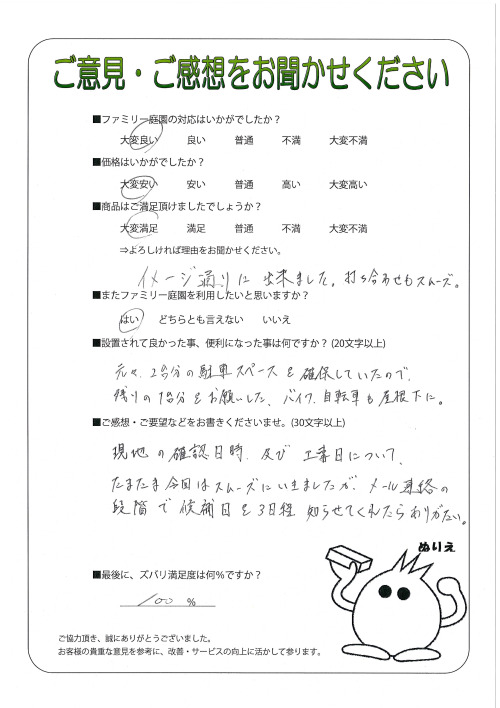 ご意見・ご感想をお聞かせください
■ファミリー庭園の対応はいかがでしたか？
大変良い 良い 普通 不満 大変不満
■価格はいかがでしたか？
大変安い 安い 普通 高い 大変高い
■商品はご満足頂けましたでしょうか？
大変満足 満足 普通 不満 大変不満
⇒よろしければ理由をお聞かせください。
イメージ通りに出来ました。打ち合わせもスムーズ。
■またファミリー庭園を利用したいと思いますか？
はい どちらとも言えない いいえ
■設置されて良かった事、便利になった事は何ですか？(20文字以上)
元々、2台分の駐車スペースを確保していたので、
残りの1台分をお願いした、バイク、自転車も屋根下に。
■ご感想・ご要望などをお書きくださいませ。(30文字以上)
現地の確認日時、及び工事日について、
たまたま今回はスムーズにいきましたが、メール連絡の
段階で候補日を3日程、知らせてくれたらありがたい。
ぬりえ
■最後に、ズバリ満足度は何％ですか？
100 ％
ご協力頂き、誠にありがとうございました。
お客様の貴重な意見を参考に、改善・サービスの向上に活かして参ります。